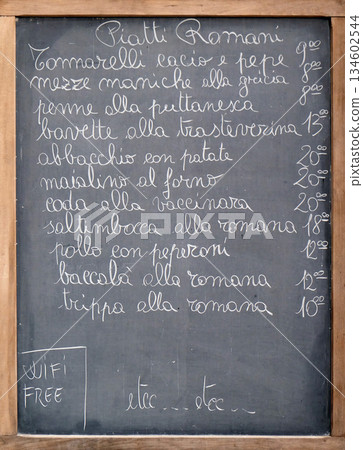 Piatti Romani
Tonnarelli cacio e pepe 9.00
mezze maniche alla gricia 8.00
penne alla puttanesca 8.00
bavette alla trasteverina 13.00
abbacchio con patate 20.00
maialino al forno 20.00
coda alla vaccinara 20.00
saltimbocca alla romana 18.00
pollo con peperoni 12.00
baccalà alla romana 12.00
trippa alla romana 10.00
WIFI
FREE
etcc ... etcc ...
PIXTA
pixta.jp - 134602544